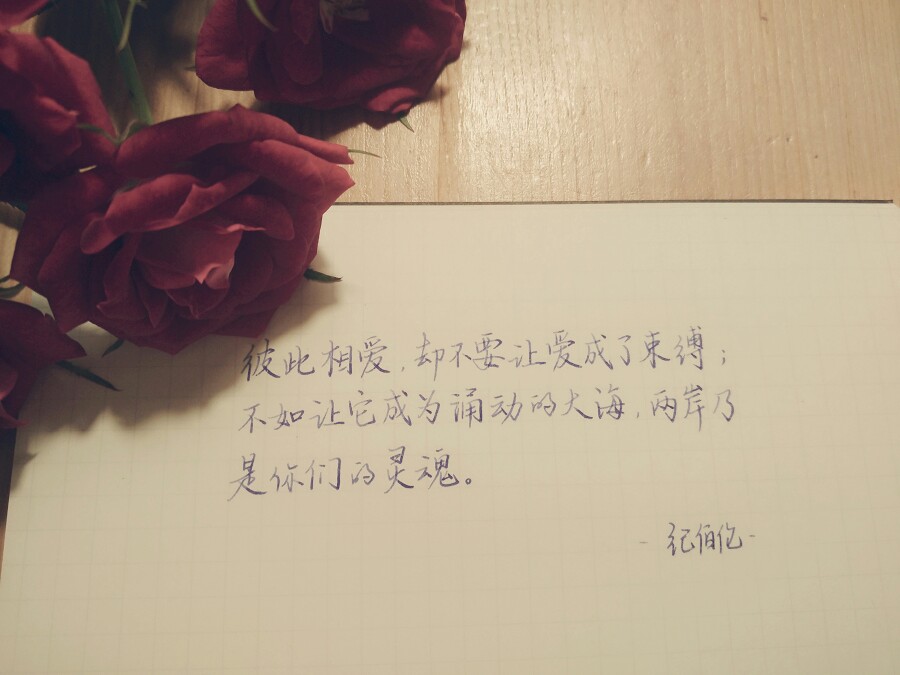 彼此相爱,却不要让爱成了束缚;
不如让它成为诵动的大海,两岸乃
是你们的灵魂。
- 纪伯伦 -